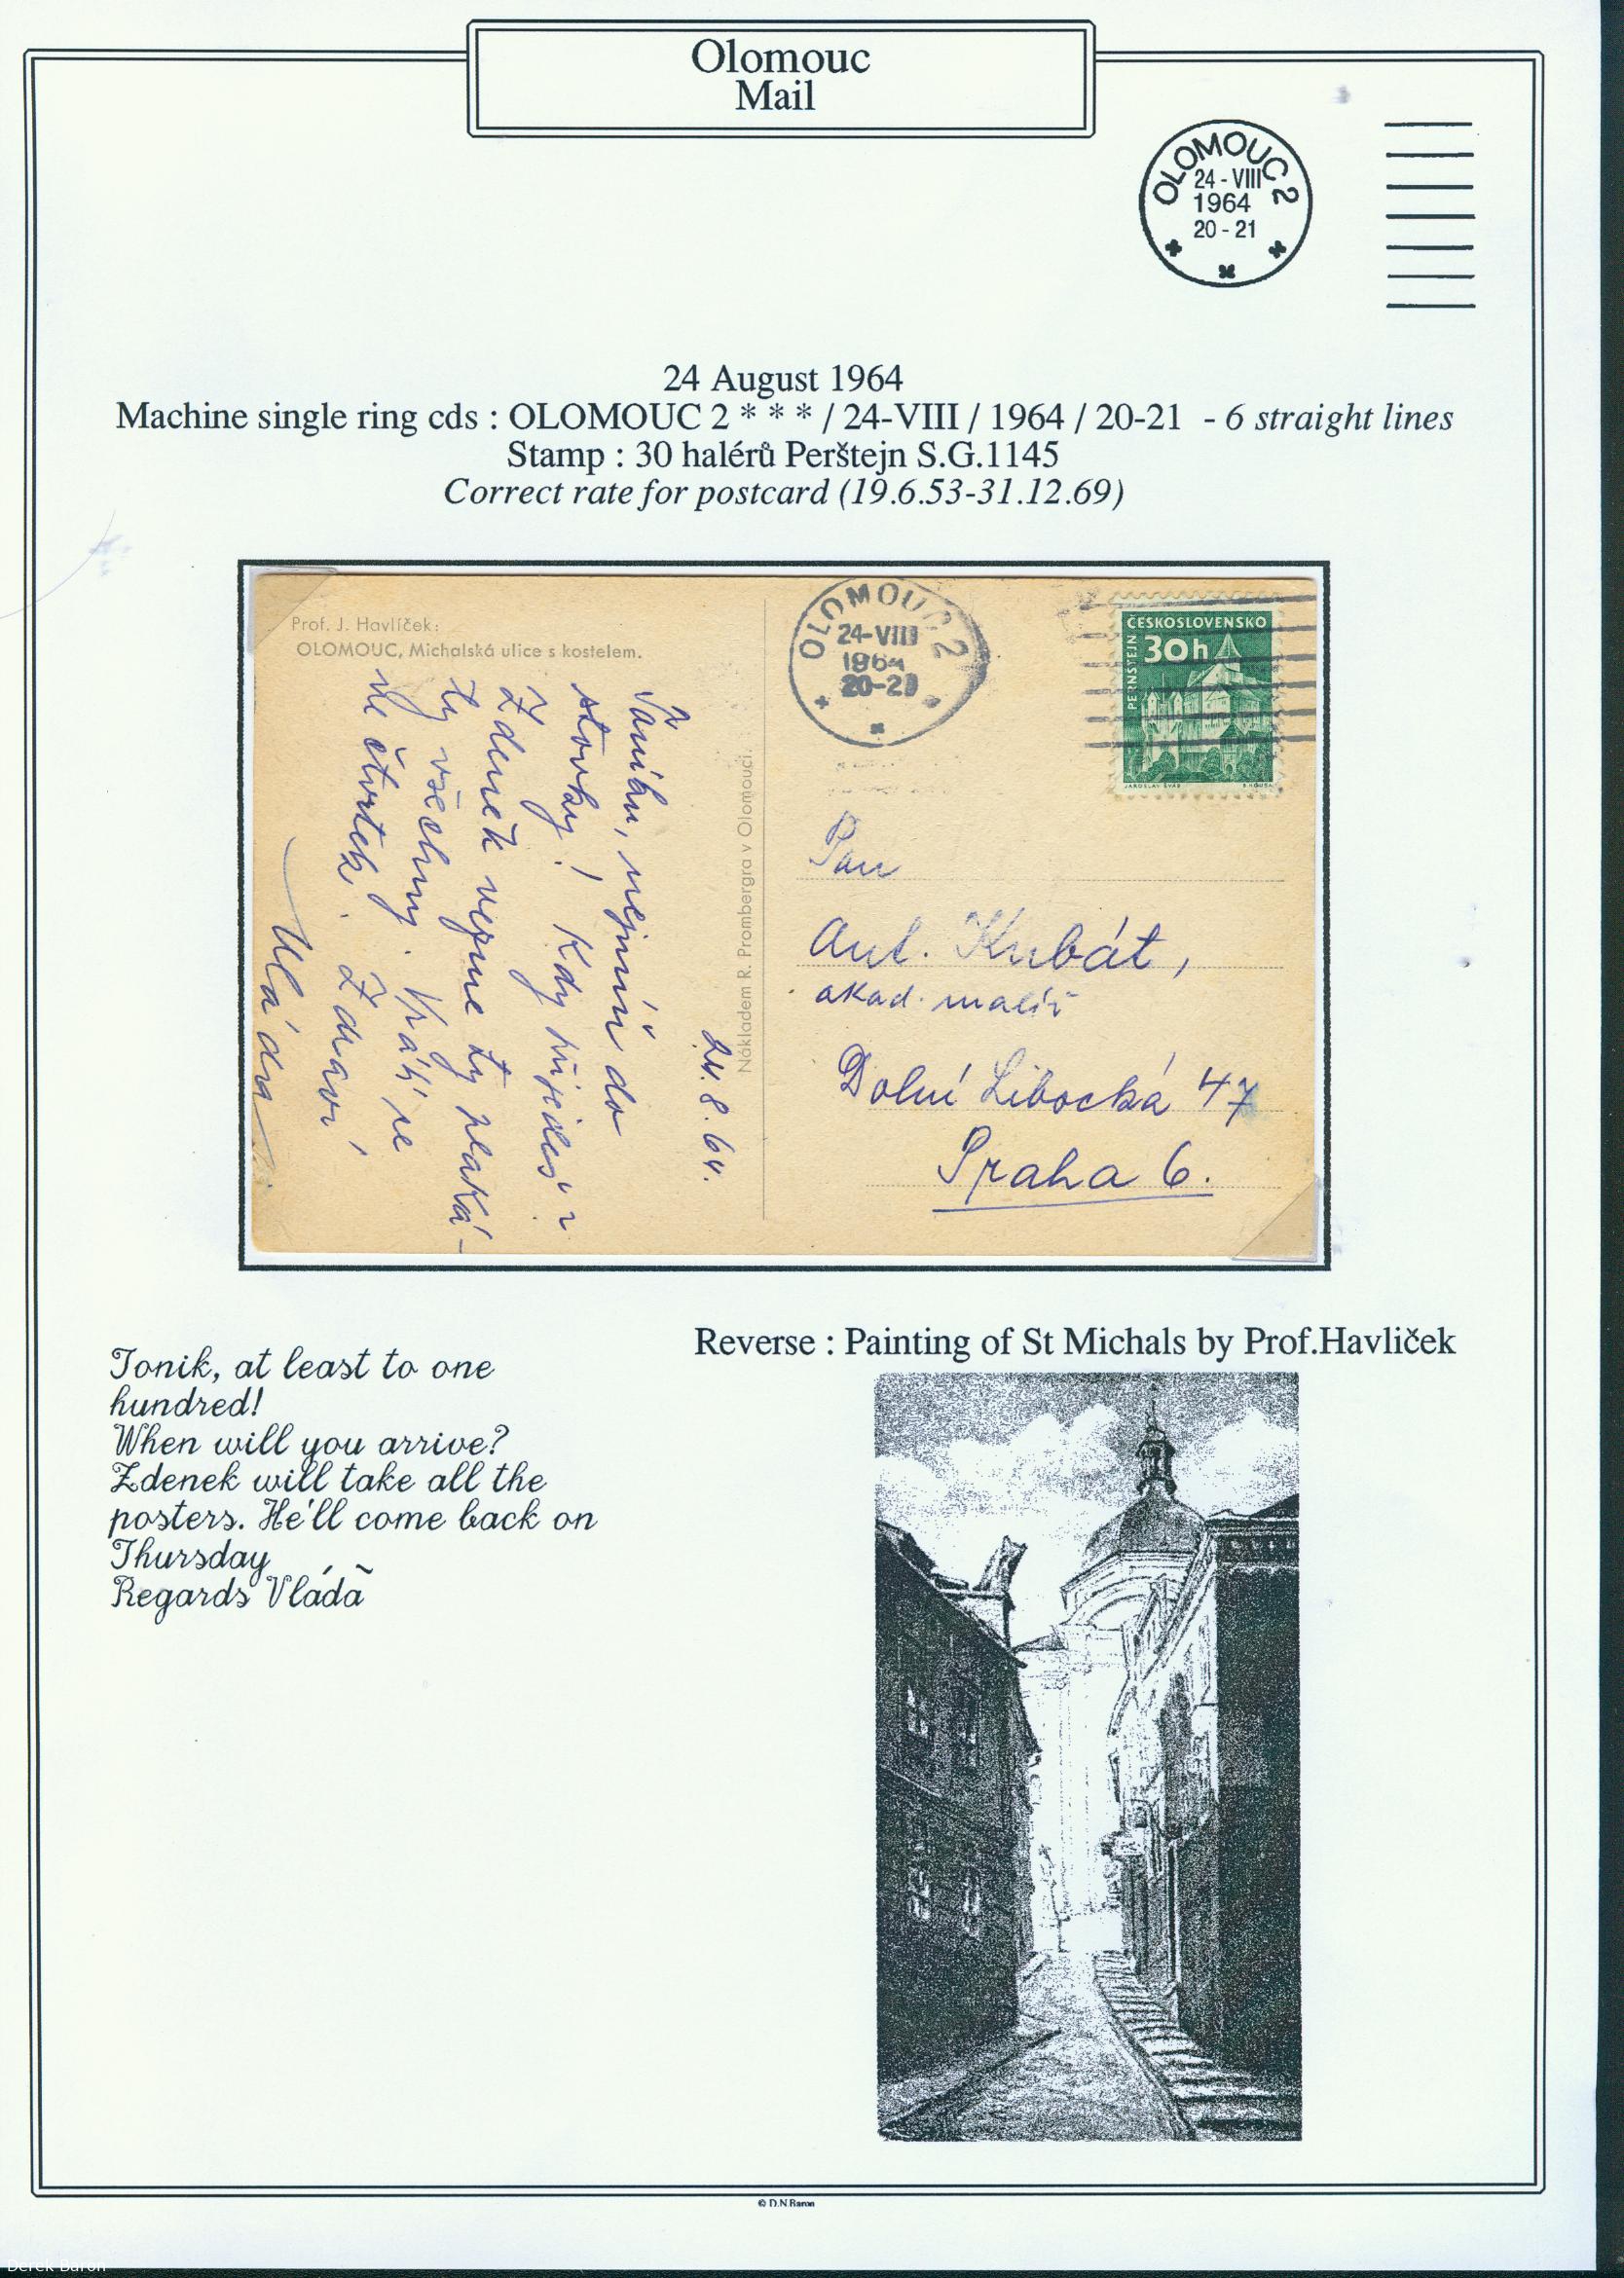 Olomouc
Mail
OLOMOUC 2
24 - VIII
1964
20 - 21
24 August 1964
Machine single ring cds : OLOMOUC 2 * * * / 24-VIII / 1964 / 20-21 - 6 straight lines
Stamp : 30 halérů Perštejn S.G.1145
Correct rate for postcard (19.6.53-31.12.69)
Prof. J. Havlíček:
OLOMOUC, Michalská ulice s kostelem.
OLOMOUC 2
24-VIII
1964
20-21
ČESKOSLOVENSKO
30h
PERNŠTEJN
JAROSLAV ŠVÁB
24.8.64.
nejmíň do
stovky! Kdy přijedeš?
Zdeněk vezme ty plaká-
ty všechny. Vrátí se
ve čtvrtek. Zdraví
Vláďa
Nákladem R. Prombergra v Olomouci.
Pan
Ant. Kubát,
akad. malíř
Dolní Libocká 47
Praha 6.
Reverse : Painting of St Michals by Prof.Havliček
Tonik, at least to one
hundred!
When will you arrive?
Zdenek will take all the
posters. He'll come back on
Thursday
Regards Vládã
© D.N.Baron
Derek Baron